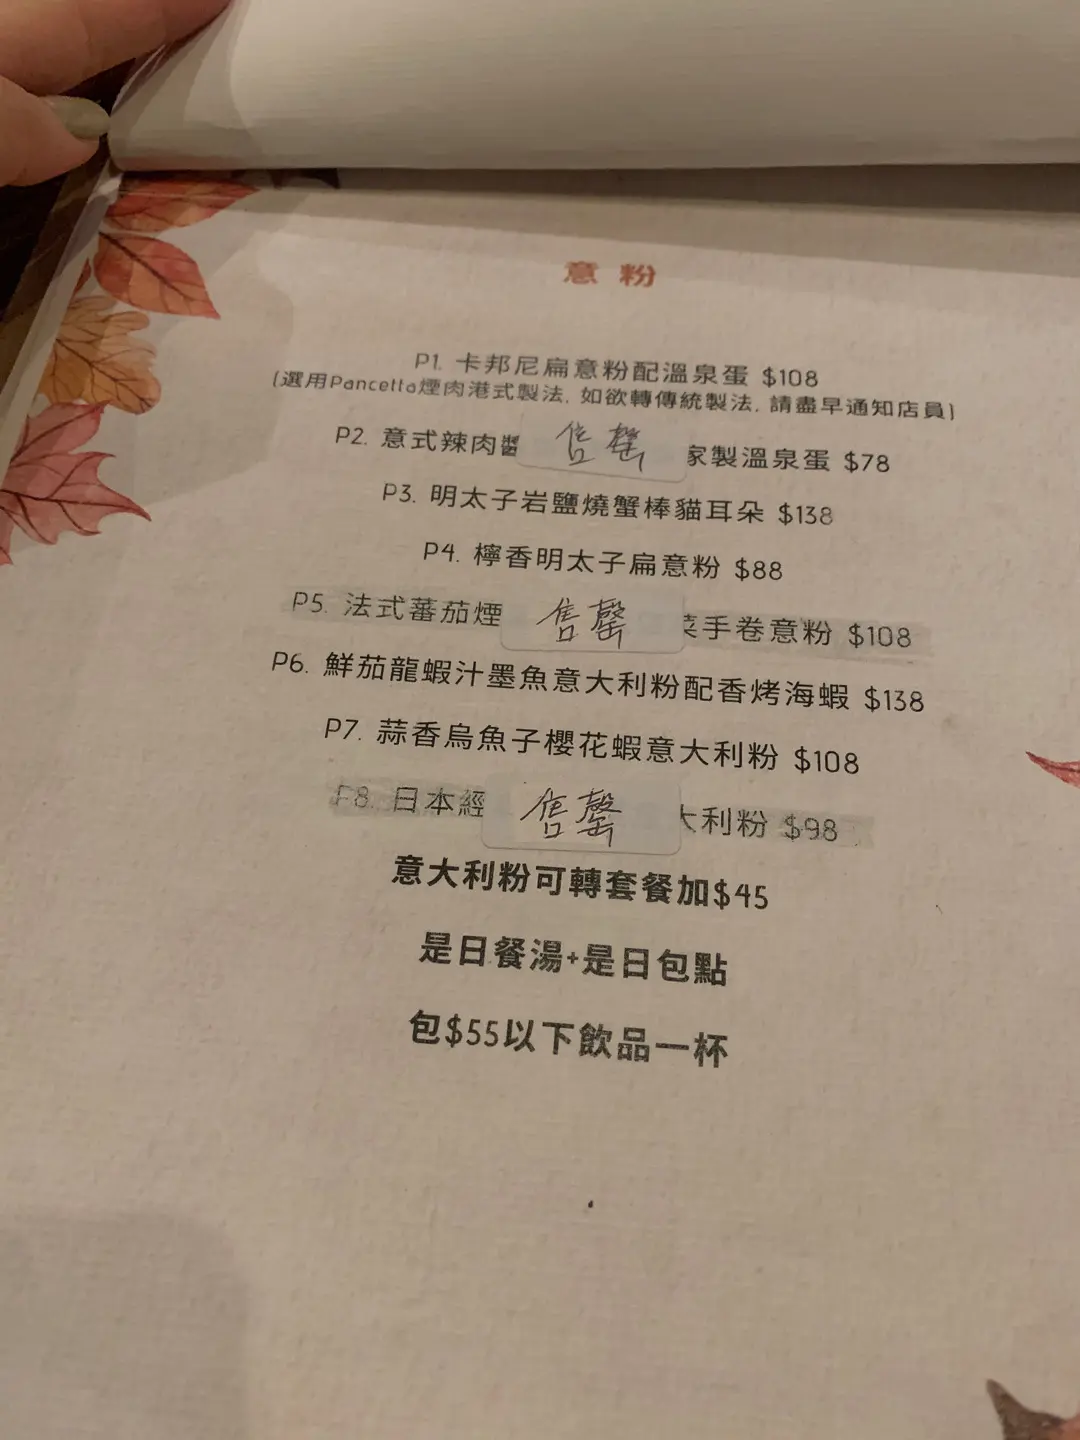 意粉
P1. 卡邦尼扁意粉配溫泉蛋 $108
(選用Pancetta煙肉港式製法, 如欲轉傳統製法, 請盡早通知店員)
P2. 意式辣肉醬 售罄 家製溫泉蛋 $78
P3. 明太子岩鹽燒蟹棒貓耳朵 $138
P4. 檸香明太子扁意粉 $88
P5. 法式蕃茄煙 售罄 菜手卷意粉 $108
P6. 鮮茄龍蝦汁墨魚意大利粉配香烤海蝦 $138
P7. 蒜香烏魚子櫻花蝦意大利粉 $108
P8. 日本經 售罄 大利粉 $98
意大利粉可轉套餐加$45
是日餐湯+是日包點
包$55以下飲品一杯